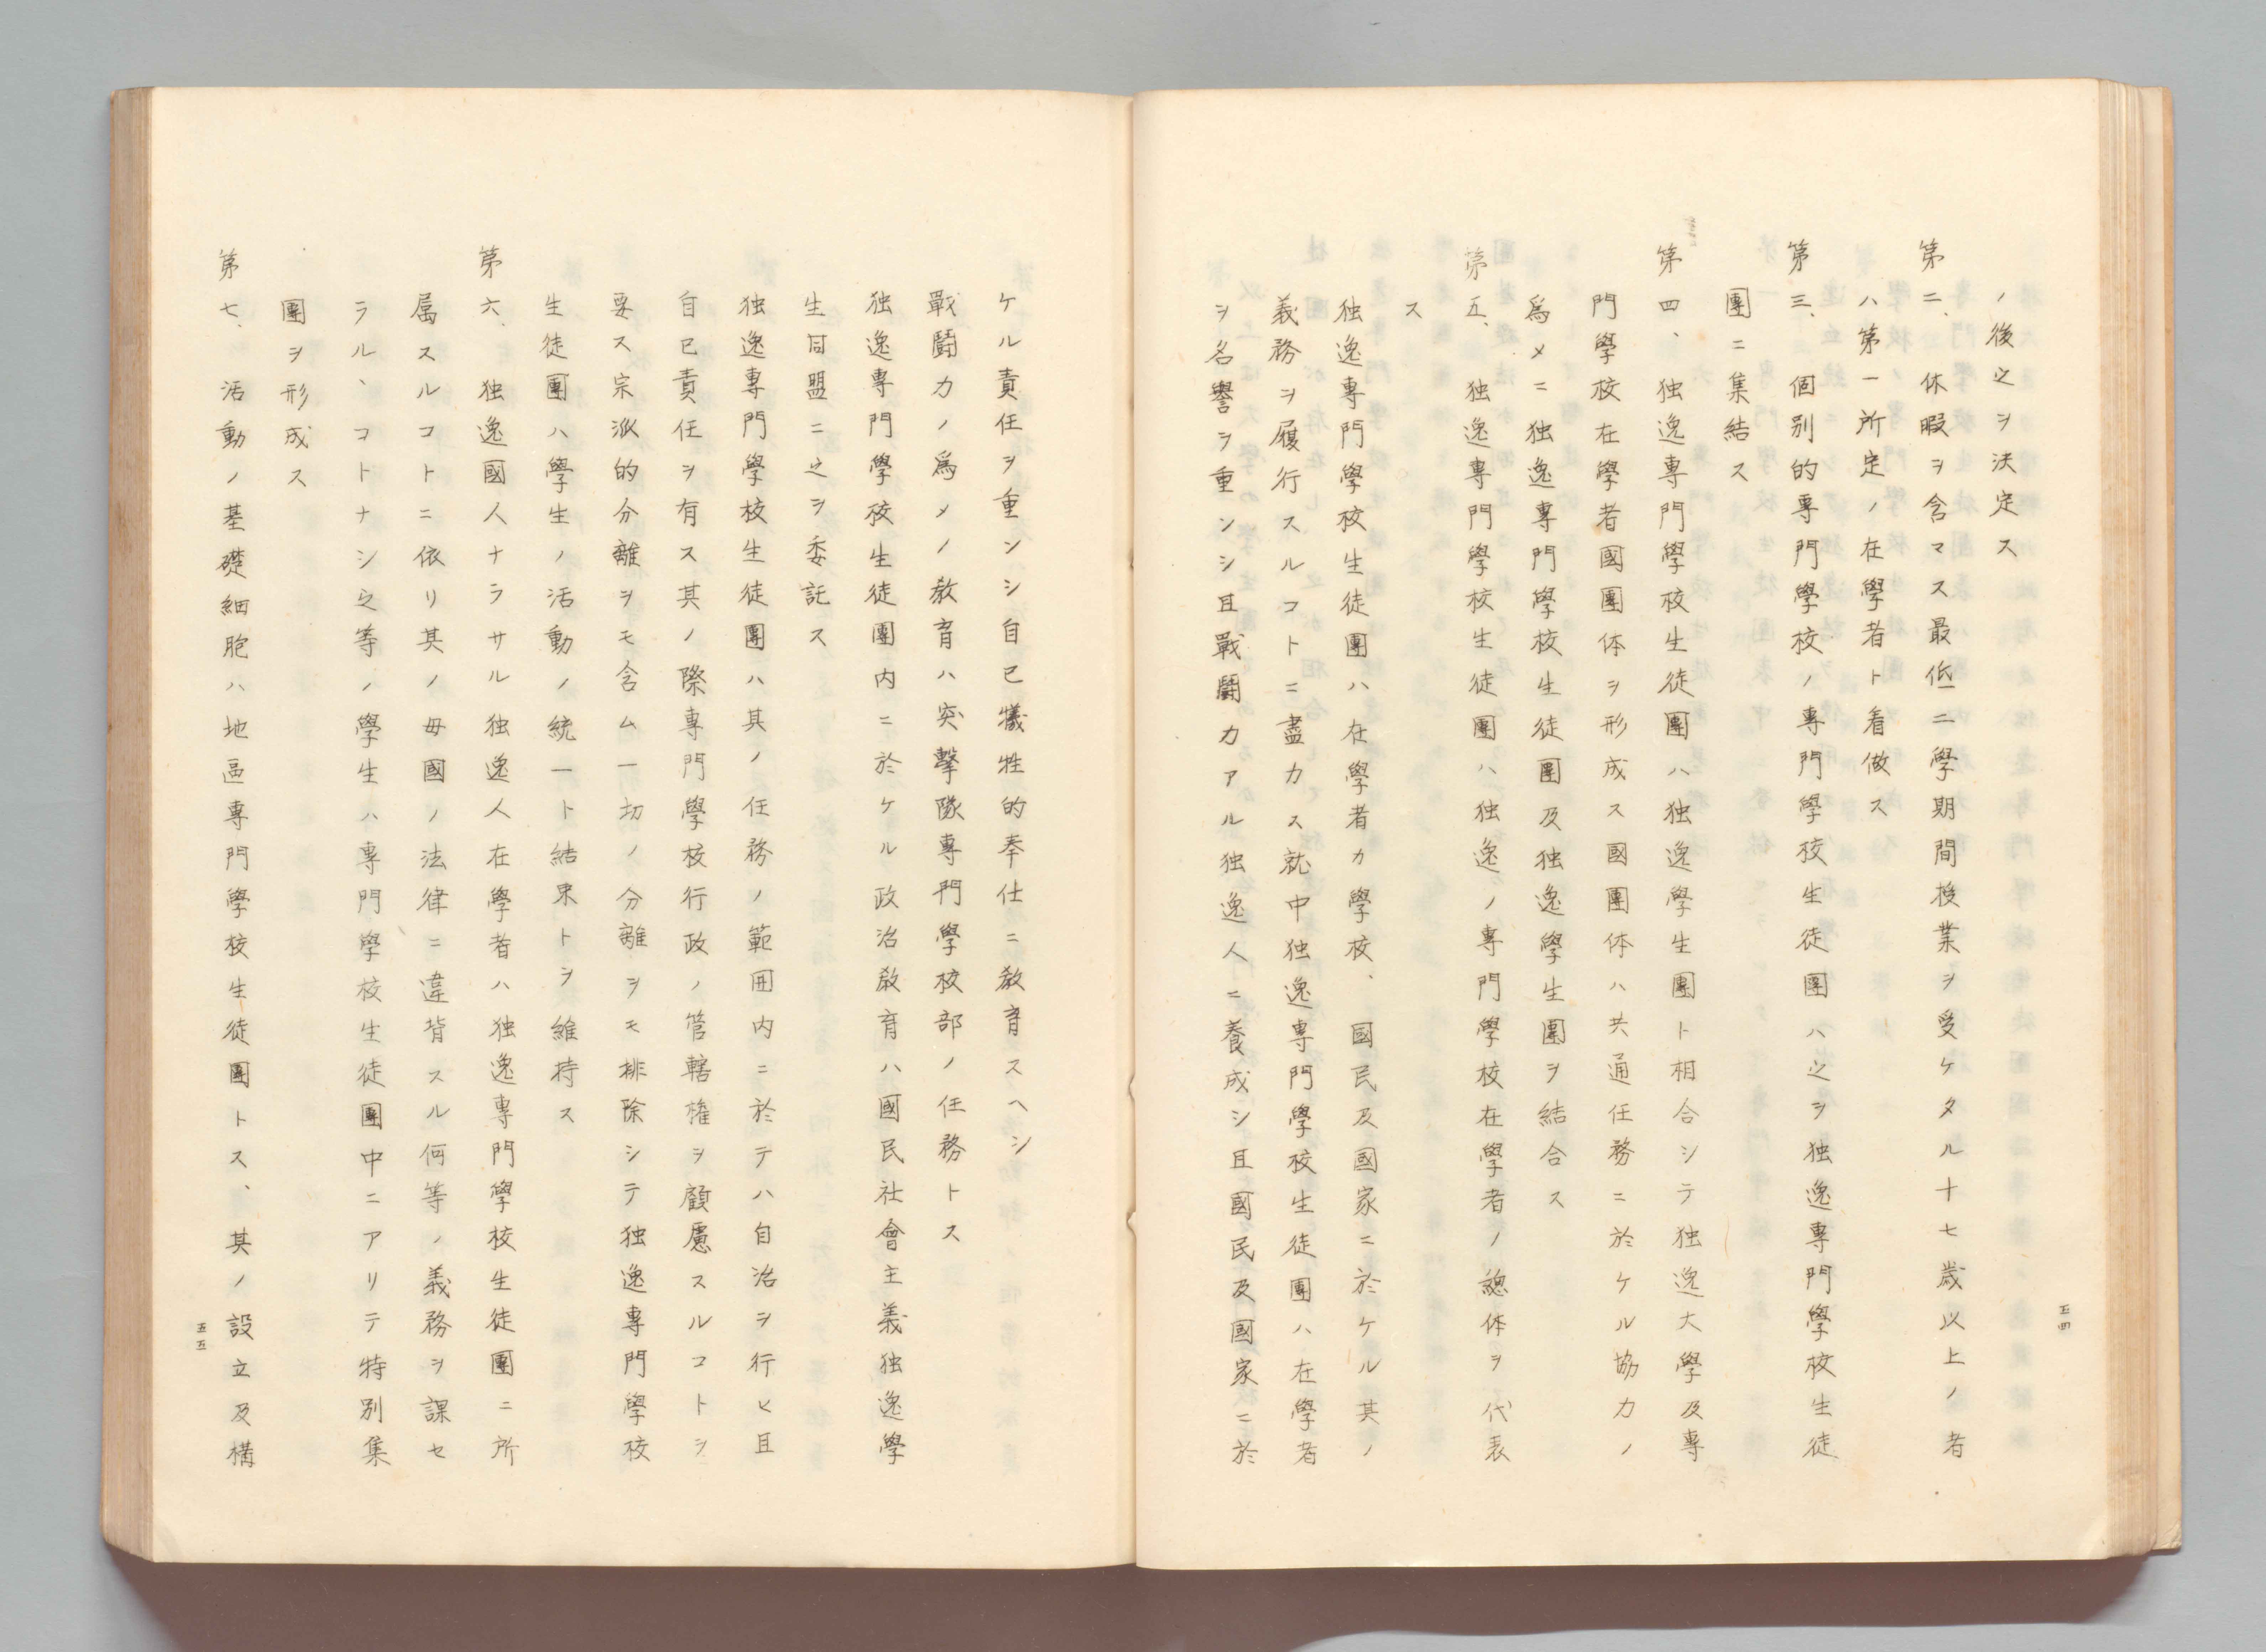 ノ後之ヲ決定ス
第二、休暇ヲ含マス最低二學期間授業ヲ受ケタル十七歳以上ノ者
ハ第一所定ノ在學者ト看做ス
第三、個別的専門學校ノ専門學校生徒團ハ之ヲ独逸専門學校生徒
團ニ集結ス
第四、独逸専門學校生徒團ハ独逸學生團ト相合シテ独逸大學及専
門學校在學者國團体ヲ形成ス國團体ハ共通任務ニ於ケル協力ノ
爲メニ独逸専門學校生徒團及独逸學生團ヲ結合ス
第五、独逸専門學校生徒團ハ独逸ノ専門學校在學者ノ總体ヲ代表
ス
独逸専門學校生徒團ハ在學者カ學校、國民及國家ニ於ケル其ノ
義務ヲ履行スルコトニ盡力ス就中独逸専門學校生徒團ハ在學者
ヲ名譽ヲ重ンシ且戰鬪力アル独逸人ニ養成シ且國民及國家ニ於
五四
ケル責任ヲ重ンシ自己犠牲的奉仕ニ教育スヘシ
戰鬪力ノ爲メノ教育ハ突擊隊専門學校部ノ任務トス
独逸専門學校生徒團内ニ於ケル政治教育ハ國民社會主義独逸學
生同盟ニ之ヲ委託ス
独逸専門學校生徒團ハ其ノ任務ノ範囲内ニ於テハ自治ヲ行ヒ且
自己責任ヲ有ス其ノ際専門學校行政ノ管轄権ヲ顧慮スルコトヲ
要ス宗派的分離ヲモ含ム一切ノ分離ヲモ排除シテ独逸専門學校
生徒團ハ學生ノ活動ノ統一ト結束トヲ維持ス
第六、独逸國人ナラサル独逸人在學者ハ独逸専門學校生徒團ニ所
属スルコトニ依リ其ノ母國ノ法律ニ違背スル何等ノ義務ヲ課セ
ラル、コトナシ之等ノ學生ハ専門學校生徒團中ニアリテ特別集
團ヲ形成ス
第七、活動ノ基礎細胞ハ地區専門學校生徒團トス、其ノ設立及構
五五